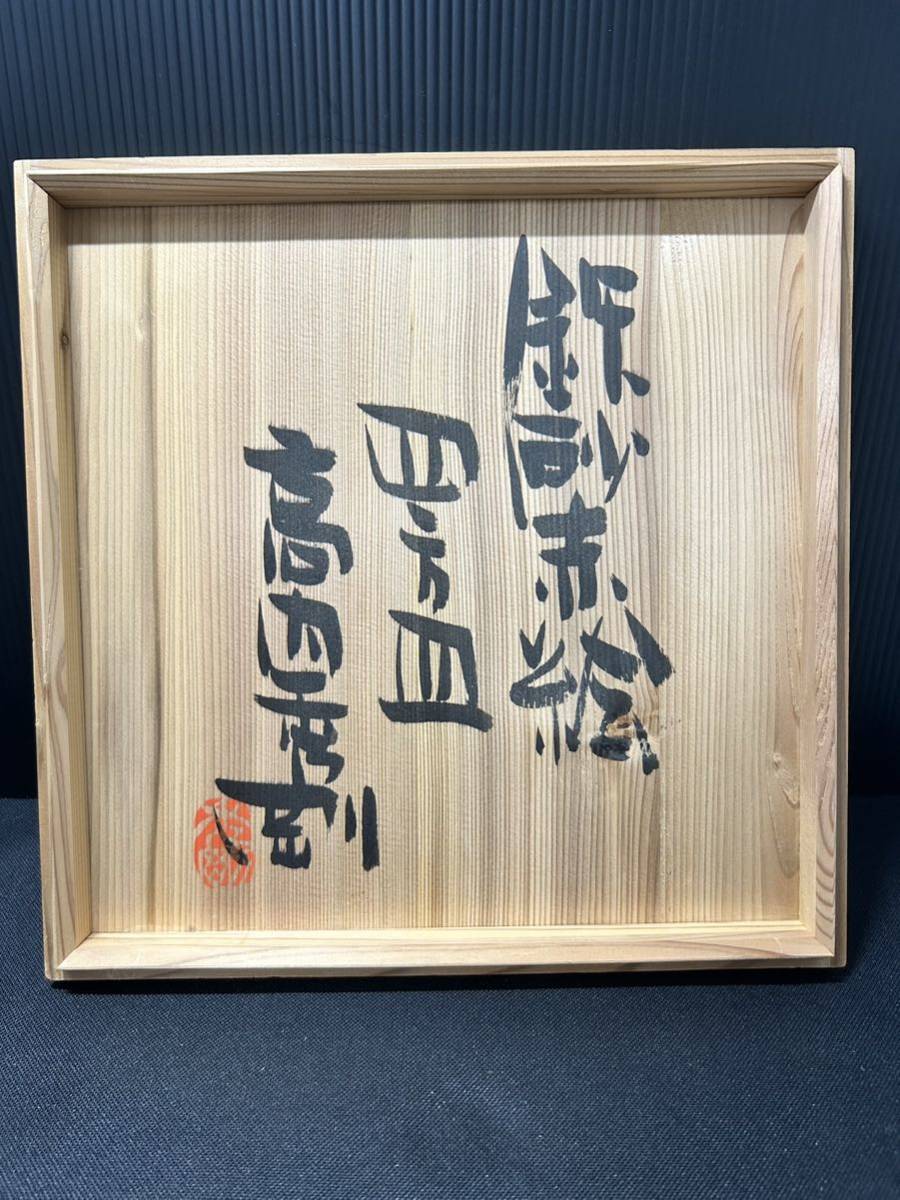 鉄砂赤絵
四方皿
高内秀剛